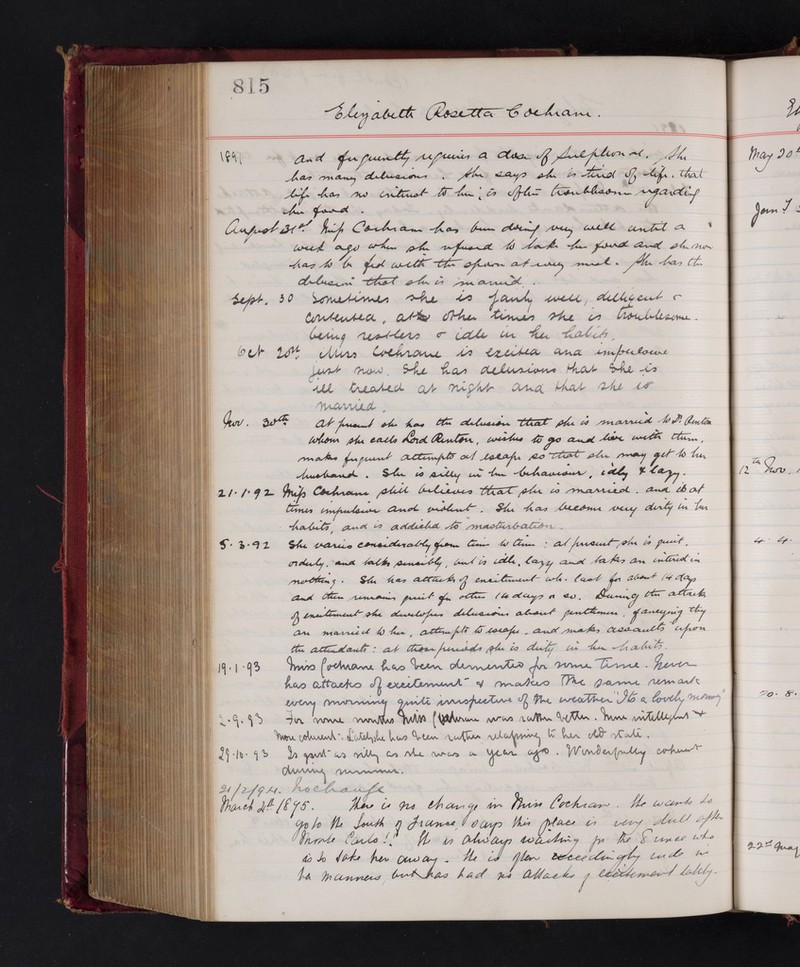 815
Elizabeth Rosetta Cochrane.
1891 and frequently requires a dose of Sulphonal. She
has many delusions. She says she is tired of life, that
life has no interest to her; is often troublesome regarding
her food.
August 31st Miss Cochrane has been doing very well until a
week ago when she refused to take her food and she now
has to be fed with the spoon at every meal. She has the
delusion that she is married.
Sept. 30 Sometimes she is fairly well, dilligent &
contented, at other times she is troublesome.
being restless & idle in her habits.
Oct 20th Miss Cochrane is excited and impulsive
just now. She has delusions that she is
ill treated at night and that she is
married.
Nov. 30th At present she has the delusion that she is married to Dr. Renton
whom she calls Lord Renton, wishes to go and live with them,
makes frequent attempts at escape so that she may get to her
husband. She is silly in her behaviour, idly & lazy.
21.1.92 Miss Cochrane still believes that she is married. and is at
times impulsive and violent. She has become very dirty in her
habits, and is addicted to masturbation.
5.3.92 She varies considerably from time to time: at present, she is quiet,
orderly, and talks sensibly, but is idle, lazy and takes an interest in
nothing. She has attacks of excitement wh. last for about 14 days
and then remains quiet for other 14 days or so. During the attacks
of excitement she developes delusions about gentlemen, fancying they
are married to her, attempts to escape, and makes assaults upon
the attendants: at those periods she is dirty in her habits.
19.1.93 Miss Cochrane has been demented for some time. Never
has attacks of excitement & makes the same remark
every morning quite irrespective of the weather "Its a lovely morning"
2.9.93 For some months Miss Cochrane was rather better. More intelligent &
more coherent. Lately she has been rather relapsing to her old state.
29.10.93 Is just as silly as she was a year ago. Wonderfully coherent
during summer.
21/2/94. No change
March 2d 1895. There is no change in Miss Cochrane. She wants to
go to the South of France, & says this place is very dull after
Monte Carlo!! She is always waiting for the Prince who
is to take her away. She is often exceedingly rude in
her manners, but has had no attacks of excitement lately.
May 20th
Jany
12th Nov.
4. 4.
20. 8.
22nd May